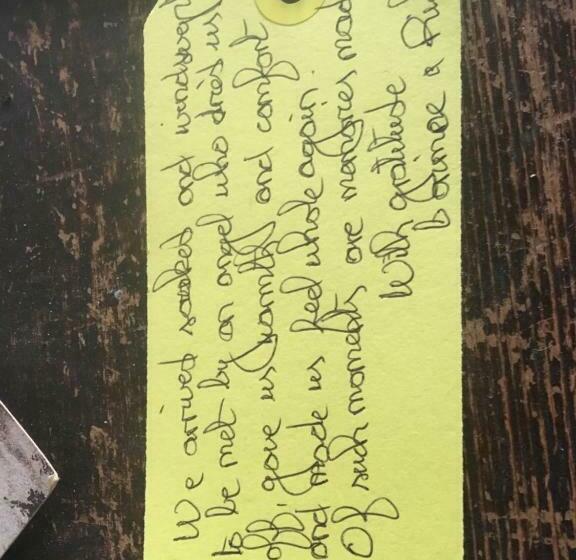 We arrived soaked and windswept
to be met by an angel who dried us
off, gave us warmth and comfort
and made us feel whole again.
Of such moments are memories mad
With gratitude
Lorinee a